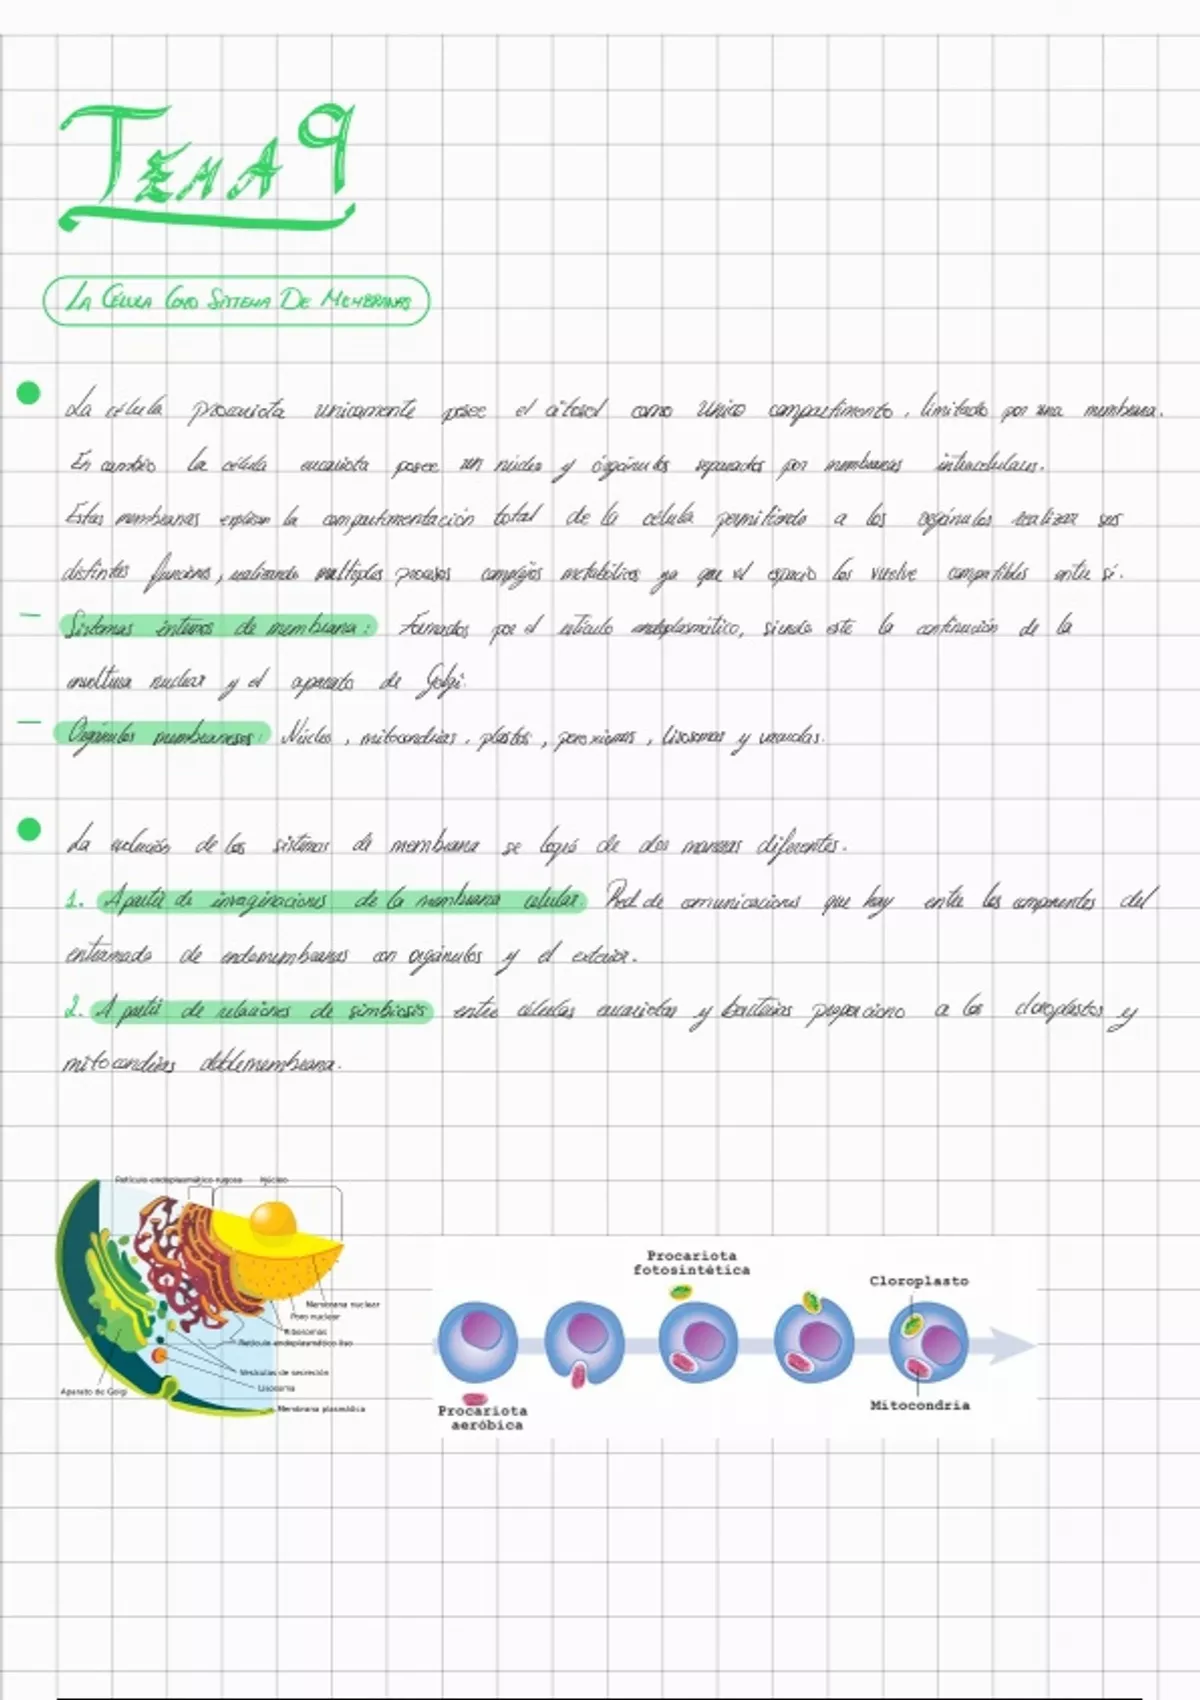 TEMA 9
LA CÉLULA COMO SISTEMA DE MEMBRANAS
La célula procariota unicamente posee el citosol como único compartimento, limitado por una membrana.
En cambio la célula eucariota posee un núcleo y órganulos separados por membranas intracelulares.
Estas membranas explican la compartimentación total de la célula permitiendo a los orgánulos realizar sus
distintas funciones, realizando multiples procesos complejos metabólicos ya que el espacio los vuelve compatibles entre sí.
— Sistemas internos de membrana: Formados por el retículo endoplasmático, siendo este la continuación de la
envoltura nuclear y el aparato de Golgi.
— Orgánulos membranosos: Núcleo, mitocondrias, plastos, peroxisomas, lisosomas y vacuolas.
La evolución de los sistemas de membrana se logró de dos maneras diferentes.
1. A partir de invaginaciones de la membrana celular. Red de comunicaciones que hay entre los componentes del
entramado de endomembranas con orgánulos y el exterior.
2. A partir de relaciones de simbiosis entre células eucariotas y bacterias proporciono a los cloroplastos y
mitocondrias doblemembrana.
Retículo endoplasmático rugoso Núcleo
Membrana nuclear
Poro nuclear
Ribosomas
Retículo endoplasmático liso
Vesículas de secreción
Lisosoma
Aparato de Golgi
Membrana plasmática
Procariota
fotosintética
Cloroplasto
Procariota
aeróbica
Mitocondria